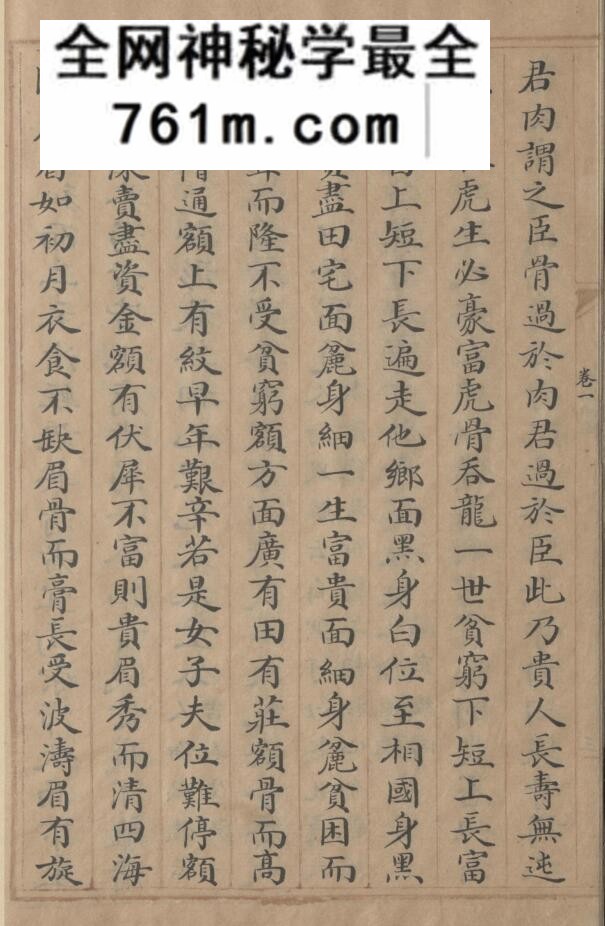 全网神秘学最全
761m.com
卷一
君肉謂之臣骨過於肉君過於臣此乃貴人長壽無迍
虎生必豪富虎骨吞龍一世貧窮下短上長富
上短下長遍走他鄉面黑身白位至相國身黑
盡田宅面麄身細一生富貴面細身麄貧困而
而隆不受貧窮額方面廣有田有莊額骨而高
通額上有紋早年艱辛若是女子夫位難停額
賣盡資金額有伏犀不富則貴眉秀而清四海
眉如初月衣食不缺眉骨而膏長受波濤眉有旋